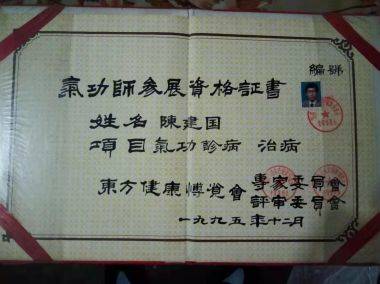 編號
氣功師參展資格証書
姓名 陳建国
項目 氣功診病 治病
東方健康博覽會 專家委員會
評審委員會
一九九五年十二月